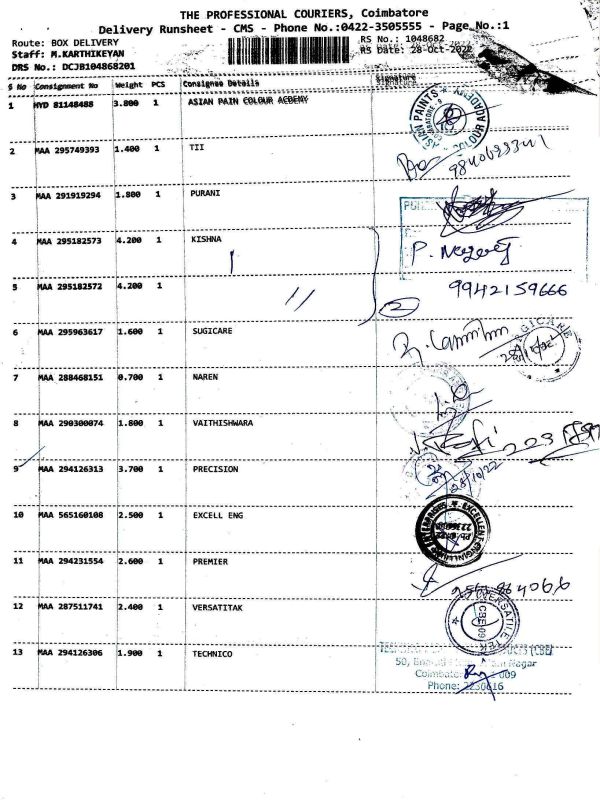 THE PROFESSIONAL COURIERS, Coimbatore
Delivery Runsheet - CMS - Phone No.:0422-3505555 - Page No.:1
Route: BOX DELIVERY
RS No.: 1048682
Staff: M.KARTHIKEYAN
RS Date: 28-Oct-2022
DRS No.: DCJB104868201
S No Consignment No Weight PCS Consignee Details Signature
1 HYD 81148488 3.800 1 ASIAN PAIN COLOUR ACDEMY
ASIAN PAINTS
COLOUR ACADEMY
2 MAA 295749393 1.400 1 TII
3 MAA 291919294 1.800 1 PURANI
4 MAA 295182573 4.200 1 KISHNA
5 MAA 295182572 4.200 1
9942159666
2
6 MAA 295963617 1.600 1 SUGICARE
7 MAA 288468151 0.700 1 NAREN
8 MAA 290300074 1.800 1 VAITHISHWARA
9 MAA 294126313 3.700 1 PRECISION
28/10/22
10 MAA 565160108 2.500 1 EXCELL ENG
11 MAA 294231554 2.600 1 PREMIER
12 MAA 287511741 2.400 1 VERSATITAK
VERSATILE TEK
13 MAA 294126306 1.900 1 TECHNICO
50,
Nagar
009
Phone: 2230616